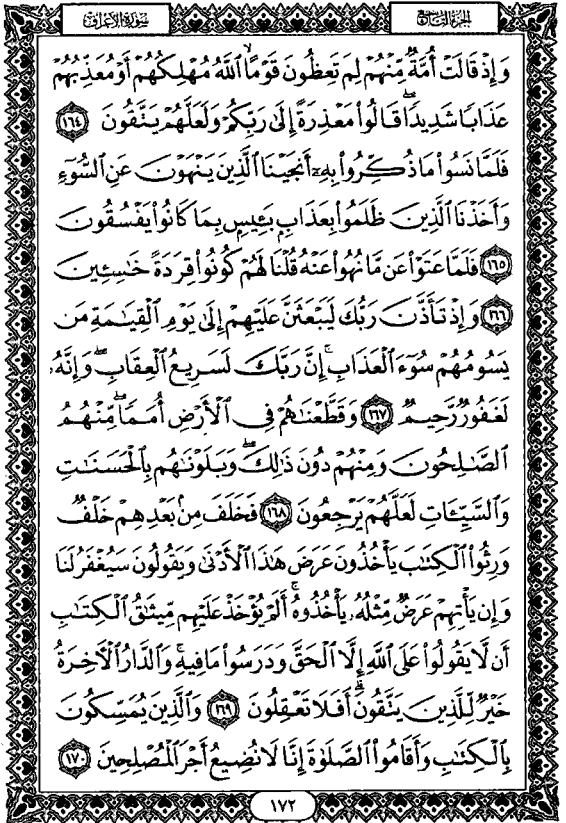 سورة الأعراف
الجزء التاسع
وَإِذْ قَالَتْ أُمَّةٌ مِّنْهُمْ لِمَ تَعِظُونَ قَوْمًا ۙ اللَّهُ مُهْلِكُهُمْ أَوْ مُعَذِّبُهُمْ
عَذَابًا شَدِيدًا ۖ قَالُوا۟ مَعْذِرَةً إِلَىٰ رَبِّكُمْ وَلَعَلَّهُمْ يَتَّقُونَ ١٦٤
فَلَمَّا نَسُوا۟ مَا ذُكِّرُوا۟ بِهِۦٓ أَنجَيْنَا الَّذِينَ يَنْهَوْنَ عَنِ السُّوٓءِ
وَأَخَذْنَا الَّذِينَ ظَلَمُوا۟ بِعَذَابٍۭ بَـِٔيسٍۭ بِمَا كَانُوا۟ يَفْسُقُونَ
١٦٥ فَلَمَّا عَتَوْا۟ عَن مَّا نُهُوا۟ عَنْهُ قُلْنَا لَهُمْ كُونُوا۟ قِرَدَةً خَـٰسِـِٔينَ
١٦٦ وَإِذْ تَأَذَّنَ رَبُّكَ لَيَبْعَثَنَّ عَلَيْهِمْ إِلَىٰ يَوْمِ الْقِيَـٰمَةِ مَن
يَسُومُهُمْ سُوٓءَ الْعَذَابِ ۗ إِنَّ رَبَّكَ لَسَرِيعُ الْعِقَابِ ۖ وَإِنَّهُۥ
لَغَفُورٌ رَّحِيمٌ ١٦٧ وَقَطَّعْنَـٰهُمْ فِى الْأَرْضِ أُمَمًا ۖ مِّنْهُمُ
الصَّـٰلِحُونَ وَمِنْهُمْ دُونَ ذَٰلِكَ ۖ وَبَلَوْنَـٰهُم بِالْحَسَنَـٰتِ
وَالسَّيِّـَٔاتِ لَعَلَّهُمْ يَرْجِعُونَ ١٦٨ فَخَلَفَ مِنۢ بَعْدِهِمْ خَلْفٌ
وَرِثُوا۟ الْكِتَـٰبَ يَأْخُذُونَ عَرَضَ هَـٰذَا الْأَدْنَىٰ وَيَقُولُونَ سَيُغْفَرُ لَنَا
وَإِن يَأْتِهِمْ عَرَضٌ مِّثْلُهُۥ يَأْخُذُوهُ ۚ أَلَمْ يُؤْخَذْ عَلَيْهِم مِّيثَـٰقُ الْكِتَـٰبِ
أَن لَّا يَقُولُوا۟ عَلَى اللَّهِ إِلَّا الْحَقَّ وَدَرَسُوا۟ مَا فِيهِ ۗ وَالدَّارُ الْـَٔاخِرَةُ
خَيْرٌ لِّلَّذِينَ يَتَّقُونَ ۗ أَفَلَا تَعْقِلُونَ ١٦٩ وَالَّذِينَ يُمَسِّكُونَ
بِالْكِتَـٰبِ وَأَقَامُوا۟ الصَّلَوٰةَ إِنَّا لَا نُضِيعُ أَجْرَ الْمُصْلِحِينَ ١٧٠
١٧٢